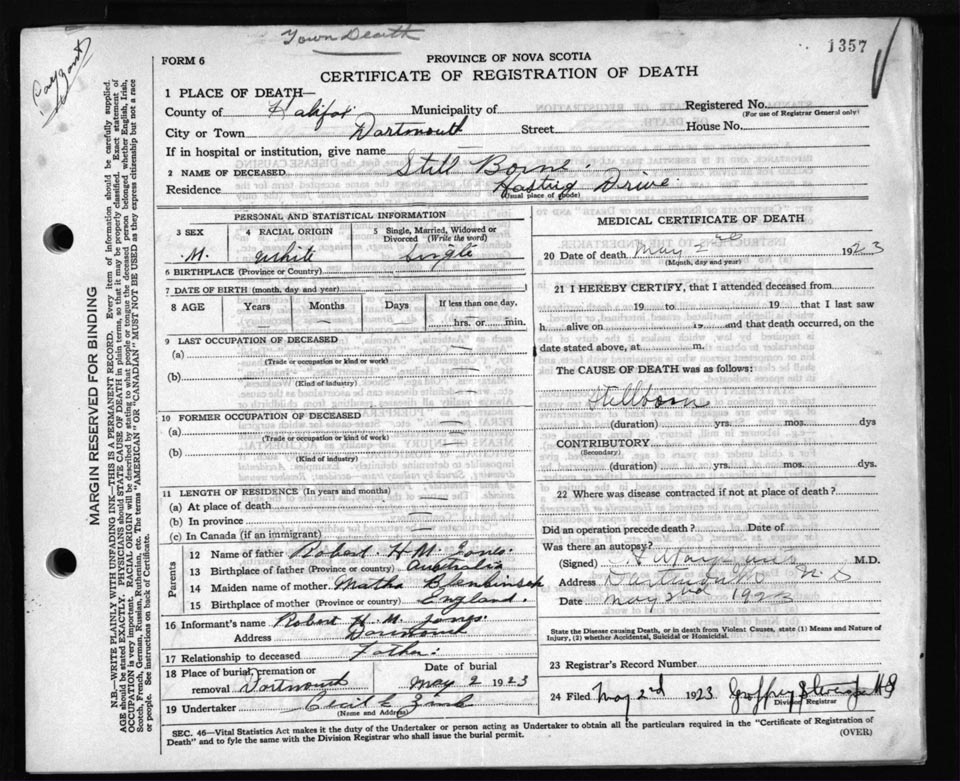 Town Death
1357
FORM 6
PROVINCE OF NOVA SCOTIA
CERTIFICATE OF REGISTRATION OF DEATH
1 PLACE OF DEATH—
County of Halifax Municipality of
Registered No.
(For use of Registrar General only)
City or Town Dartmouth Street House No.
If in hospital or institution, give name
2 NAME OF DECEASED Still Born.
Residence Drive.
(Usual place of abode)
PERSONAL AND STATISTICAL INFORMATION
3 SEX
M.
4 RACIAL ORIGIN
white
5 Single, Married, Widowed or Divorced (Write the word)
Single
6 BIRTHPLACE (Province or Country)
7 DATE OF BIRTH (month, day and year)
8 AGE Years Months Days If less than one day,
— — — hrs. or min.
9 LAST OCCUPATION OF DECEASED
(a)
(Trade or occupation or kind or work)
(b)
(Kind of industry)
10 FORMER OCCUPATION OF DECEASED
(a)
(Trade or occupation or kind or work)
(b)
(Kind of industry)
11 LENGTH OF RESIDENCE (In years and months)
(a) At place of death
(b) In province
(c) In Canada (if an immigrant)
Parents
12 Name of father Robert H. M. Jones.
13 Birthplace of father (Province or country) Australia
14 Maiden name of mother Martha
15 Birthplace of mother (Province or country) England.
16 Informant's name Robert H. M. Jones.
Address Dartmouth
17 Relationship to deceased Father.
18 Place of burial, cremation or removal Dartmouth
Date of burial
May 2 1923
19 Undertaker Cecil E. Zink
(Name and Address)
MEDICAL CERTIFICATE OF DEATH
20 Date of death May 2nd 1923
(Month, day and year)
21 I HEREBY CERTIFY, that I attended deceased from
19 to 19 that I last saw
h alive on 19 and that death occurred, on
date stated above, at m.
The CAUSE OF DEATH was as follows:
Stillborn
(duration) yrs. mos. dys
CONTRIBUTORY
(Secondary)
(duration) yrs. mos. dys.
22 Where was disease contracted if not at place of death?
Did an operation precede death? Date of
Was there an autopsy?
(Signed) M.D.
Address Dartmouth N.S
Date May 2nd 1923
State the Disease causing Death, or in death from Violent Causes, state (1) Means and Nature of
Injury, (2) whether Accidental, Suicidal or Homicidal.
23 Registrar's Record Number
24 Filed May 2nd 1923
Division Registrar
SEC. 46—Vital Statistics Act makes it the duty of the Undertaker or person acting as Undertaker to obtain all the particulars required in the "Certificate of Registration of
Death" and to fyle the same with the Division Registrar who shall issue the burial permit.
(OVER)
MARGIN RESERVED FOR BINDING
N.B.—WRITE PLAINLY WITH UNFADING INK—THIS IS A PERMANENT RECORD. Every item of information should be carefully supplied.
AGE should be stated EXACTLY. PHYSICIANS should STATE CAUSE OF DEATH in plain terms, so that it may be properly classified. Exact statement of
OCCUPATION is very important. RACIAL ORIGIN will be described by stating to what people or tongue the deceased person belonged whether English, Irish,
Scotch, French, German, Russian, Ruthenian, etc. The terms "AMERICAN" OR "CANADIAN" MUST NOT BE USED as they express citizenship but not a race
or people. See instructions on back of Certificate.